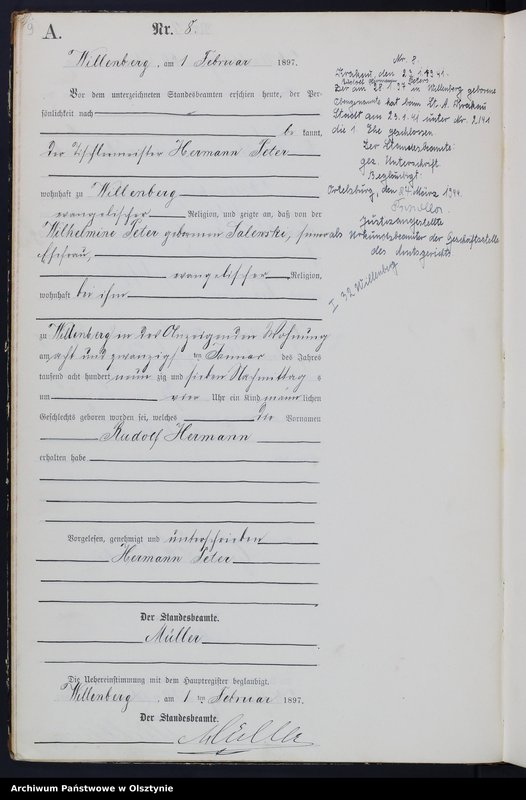 A.
Nr. 8.
Willenberg, am 1 Februar 1897.
Vor dem unterzeichneten Standesbeamten erschien heute, der Per-
sönlichkeit nach
be kannt,
der Tischlermeister Hermann Peter
wohnhaft zu Willenberg
evangelischer Religion, und zeigte an, daß von der
Wilhelmine Peter geborenen Salewski, seiner
Ehefrau,
evangelischer Religion,
wohnhaft bei ihm
zu Willenberg in des Anzeigenden Wohnung
am acht und zwanzigsten Januar des Jahres
tausend acht hundert neun zig und sieben Nachmittag s
um vier Uhr ein Kind männ lichen
Geschlechts geboren worden sei, welches die Vornamen
Rudolf Hermann
erhalten habe
Vorgelesen, genehmigt und unterschrieben
Hermann Peter
Der Standesbeamte.
Müller
Die Uebereinstimmung mit dem Hauptregister beglaubigt.
Willenberg, am 1 ten Februar 1897.
Der Standesbeamte.
Müller
Nr. 8.
Krakau, den 23.1.1941.
Rudolf Hermann Peters
Der am 28.1.97 in Willenberg geborene
hat beim St. A. Krakau
Stadt am 23.1.41 unter Nr. 2/41
die 1 Ehe geschlossen
Der Standesbeamte
gez. Unterschrift.
Beglaubigt.
Ortelsburg, den 24 März 1944.
Justizangestellte
als Urkundsbeamter der Geschäftsstelle
des Amtsgerichts
I 32 Willenberg
Archiwum Państwowe w Olsztynie